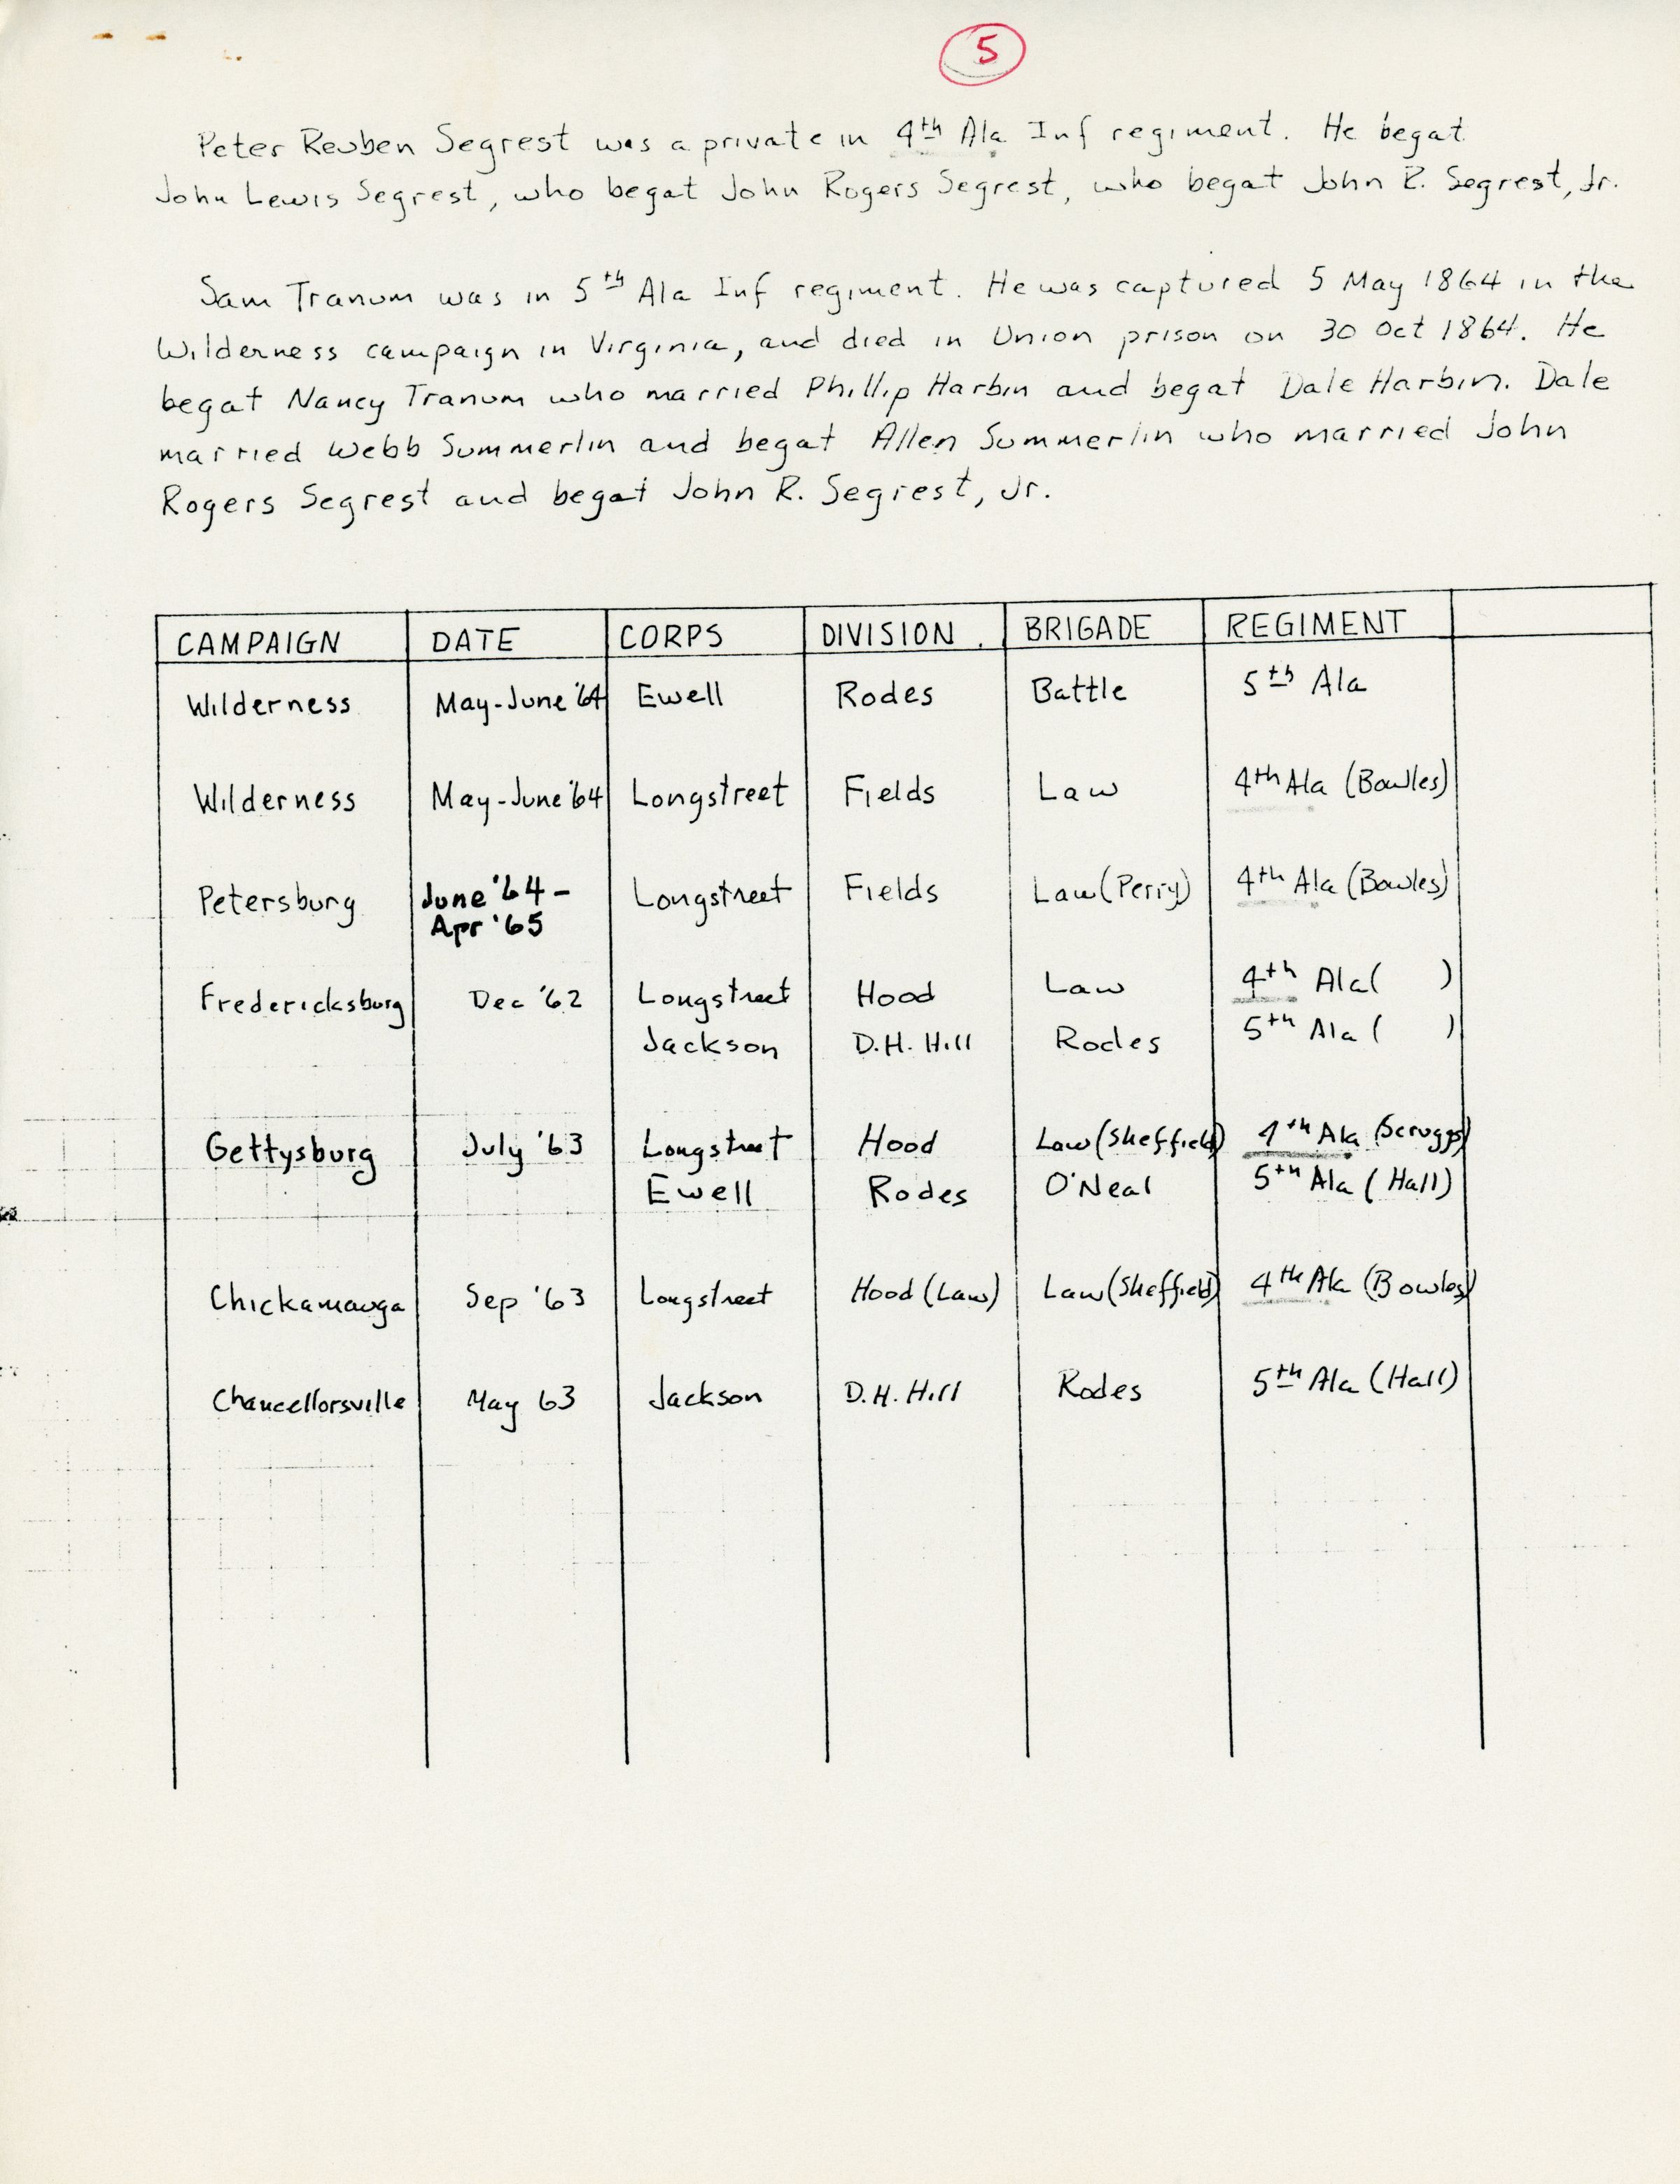 5
Peter Reuben Segrest was a private in 4th Ala Inf regiment. He begat
John Lewis Segrest, who begat John Rogers Segrest, who begat John R. Segrest, Jr.
Sam Tranum was in 5th Ala Inf regiment. He was captured 5 May 1864 in the
Wilderness campaign in Virginia, and died in Union prison on 30 Oct 1864. He
begat Nancy Tranum who married Phillip Harbin and begat Dale Harbin. Dale
married Webb Summerlin and begat Allen Summerlin who married John
Rogers Segrest and begat John R. Segrest, Jr.
CAMPAIGN DATE CORPS DIVISION. BRIGADE REGIMENT
Wilderness May-June '64 Ewell Rodes Battle 5th Ala
Wilderness May-June '64 Longstreet Fields Law 4th Ala (Bowles)
Petersburg June '64 - Longstreet Fields Law (Perry) 4th Ala (Bowles)
Apr '65
Fredericksburg Dec '62 Longstreet Hood Law 4th Ala ( )
Jackson D.H. Hill Rodes 5th Ala ( )
Gettysburg July '63 Longstreet Hood Law (Sheffield) 4th Ala (Scruggs)
Ewell Rodes O'Neal 5th Ala (Hall)
Chickamauga Sep '63 Longstreet Hood (Law) Law (Sheffield) 4th Ala (Bowles)
Chancellorsville May 63 Jackson D.H. Hill Rodes 5th Ala (Hall)